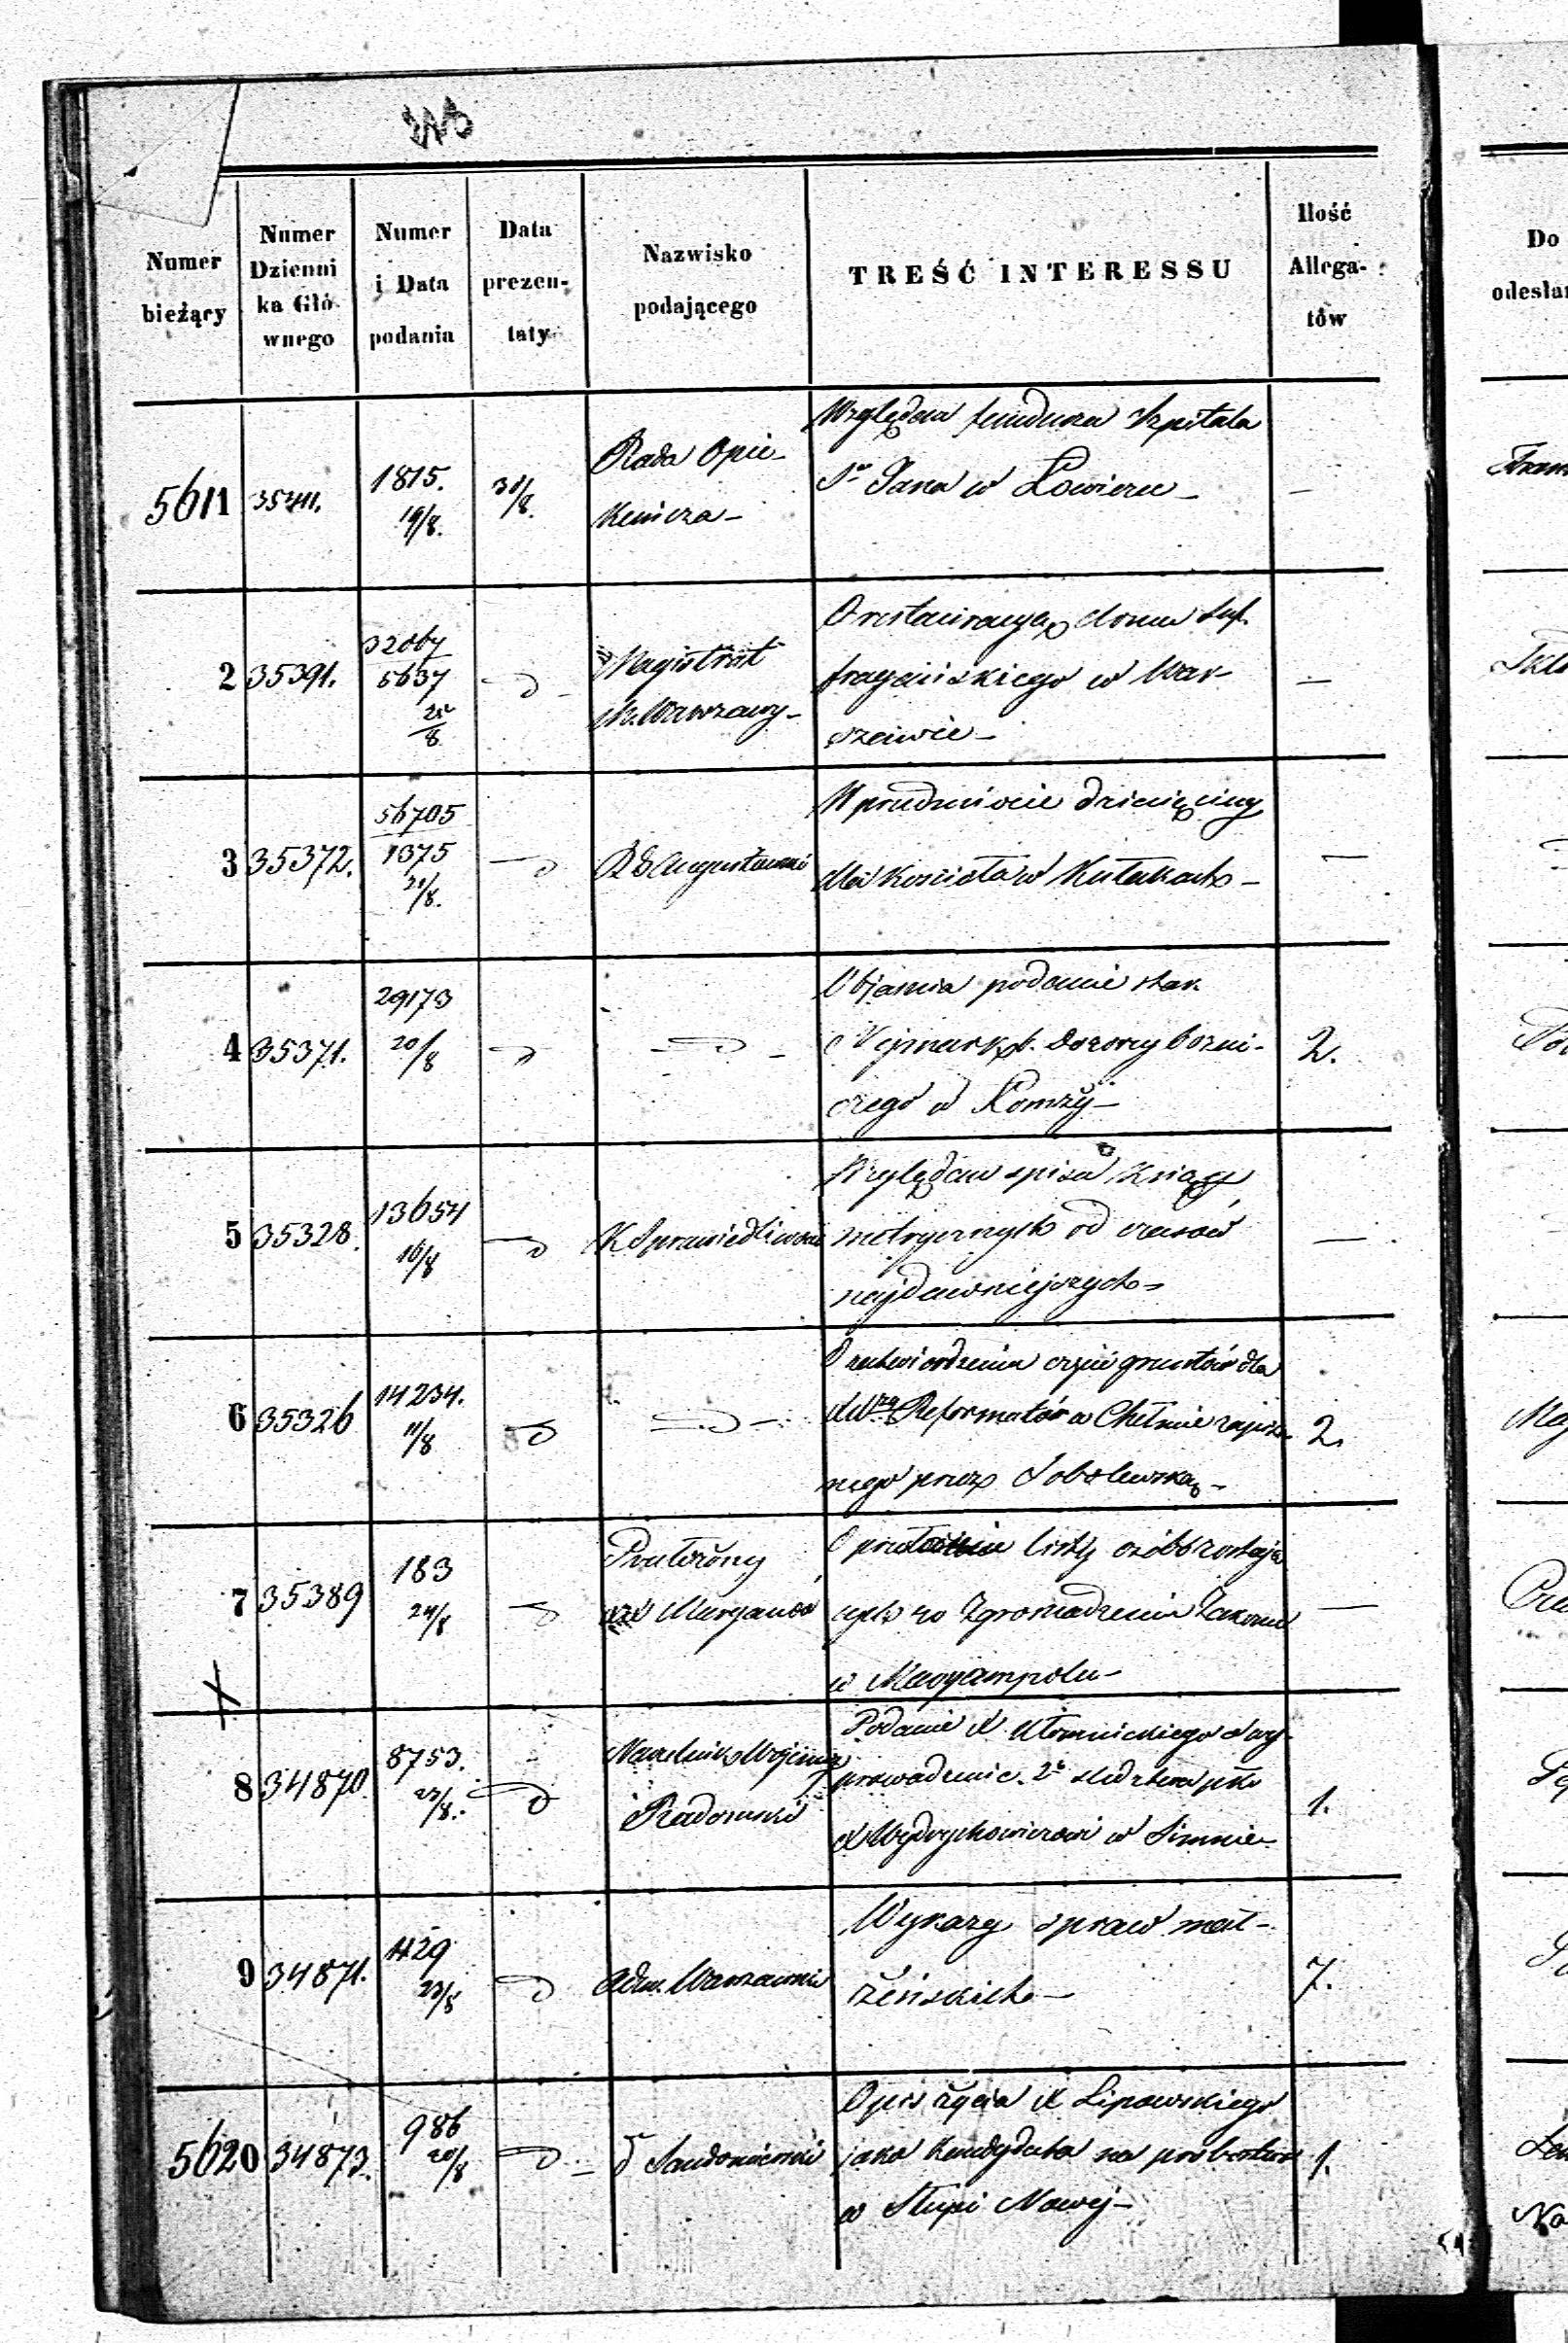 Numer bieżący
Numer Dzienni ka Głó wnego
Numer i Data podania
Data prezen- taty
Nazwisko podającego
TREŚĆ INTERESSU
Ilość Allega- tów
Do
odesłan
5611 35411. 1815. 19/8. 31/8. Rada Opie-
kuńcza-
Względem funduszu Szpitala
Sgo Jana w Łowiczu -
2 35391. 32067
5637
25/8
Magistrat
m. Warszawy -
O restauracyę domu Suf-
fragańskiego w War-
szawie -
3 35372. 56705
1375
20/8.
R. G. Augustowski
W przedmiocie dziesięciny
dla Kościoła w Kulakach -
4 35371. 29173
20/8
Objaśnia podanie star.
Wejmark b. dozorcy bożni-
czego w Łomży -
2.
5 35328. 13654
16/8
K Sprawiedliwości
Względem spisu Xiąg
metrycznych od czasów
najdawniejszych -
6 35326 14234.
11/8
O zatwierdzenie części gruntów dla
Reformatów w Chełmie zapisa-
nego przez Sobolewską -
2.
7 35389 183
24/8
Przełożony
XX Maryanów
O przedłożenie listy osób zostają
cych w Zgromadzeniu Zakonu
w Maryampolu -
8 34870. 8753.
23/8.
Naczelnik Wojenny
Radomski
Podanie X Kłomnickiego o wy-
prowadzenie 2o śledztwa pko
X Wędrychowiczowi w Simnie -
1.
9 34871. 1129
23/8
Adm. Warszawski
Wykazy spraw mał-
żeńskich -
7.
5620 34873. 986
20/8
Sandomierski
Opis życia X Lipowskiego
jako Kandydata na probostwo
w Słupi Nowej -
1.